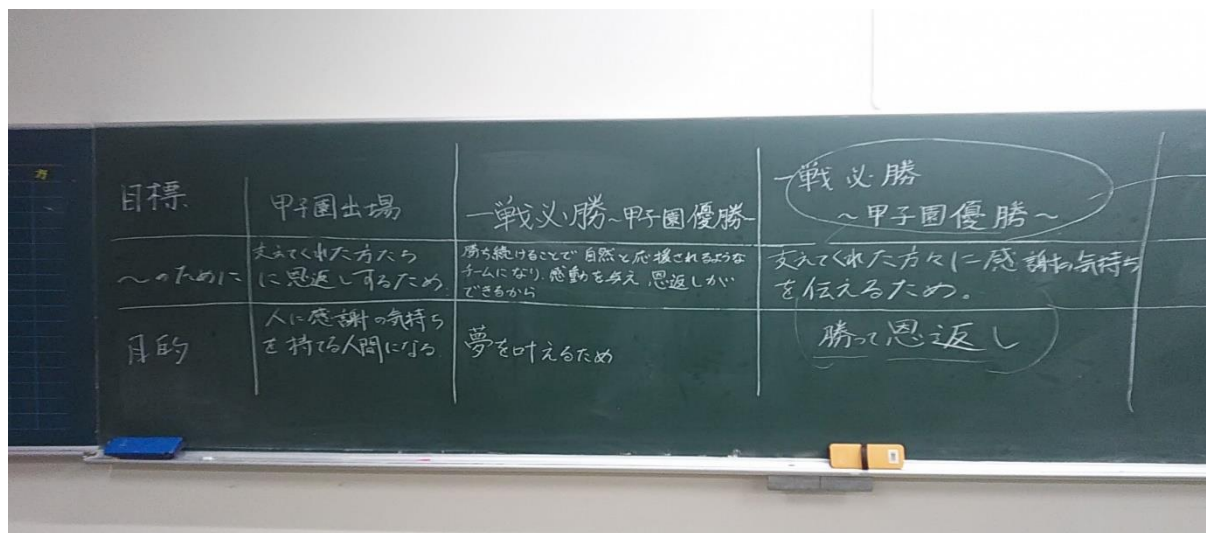 目標
甲子園出場
一戦必勝~甲子園優勝~
一戦必勝
~甲子園優勝~
~のために
支えてくれた方たち
に恩返しするため
勝ち続けることで自然と応援されるような
チームになり、感動を与え 恩返しが
できるから
支えてくれた方々に感謝の気持ち
を伝えるため。
目的
人に感謝の気持ち
を持てる人間になる
夢を叶えるため
勝って恩返し